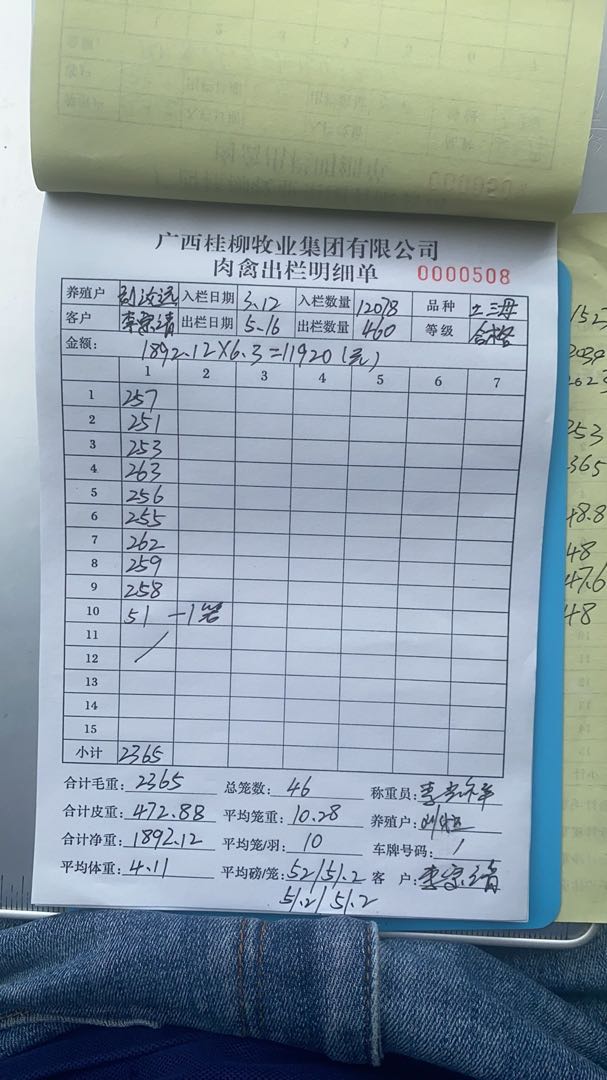 广西桂柳牧业集团有限公司
肉禽出栏明细单 0000508
养殖户 入栏日期 3.12 入栏数量 12078 品种 土三母
客户 李家靖 出栏日期 5-16 出栏数量 460 等级 合格
金额: 1892.12×6.3=11920(元)
1 2 3 4 5 6 7
1 257
2 251
3 253
4 263
5 256
6 255
7 262
8 259
9 258
10 51 一1笼
11
12
13
14
15
小计 2365
合计毛重: 2365 总笼数: 46 称重员:
合计皮重: 472.88 平均笼重: 10.28 养殖户:
合计净重: 1892.12 平均笼/羽: 10 车牌号码: /
平均体重: 4.11 平均磅/笼: 52/51.2 客 户: 李家靖
51.2/51.2
152
253
365
48.8
48
47.6
48